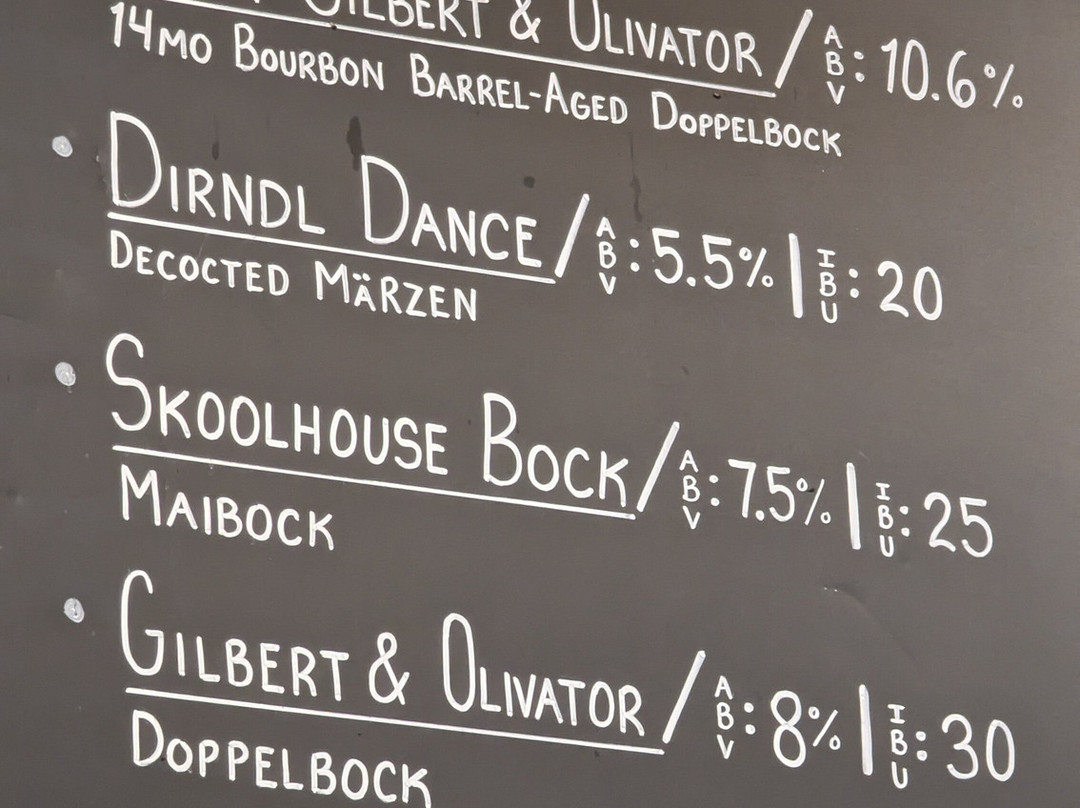 Gilbert & Olivator / ABV: 10.6%
14mo Bourbon Barrel-Aged Doppelbock
Dirndl Dance / ABV: 5.5% | IBU: 20
Decocted Märzen
Skoolhouse Bock / ABV: 7.5% | IBU: 25
Maibock
Gilbert & Olivator / ABV: 8% | IBU: 30
Doppelbock